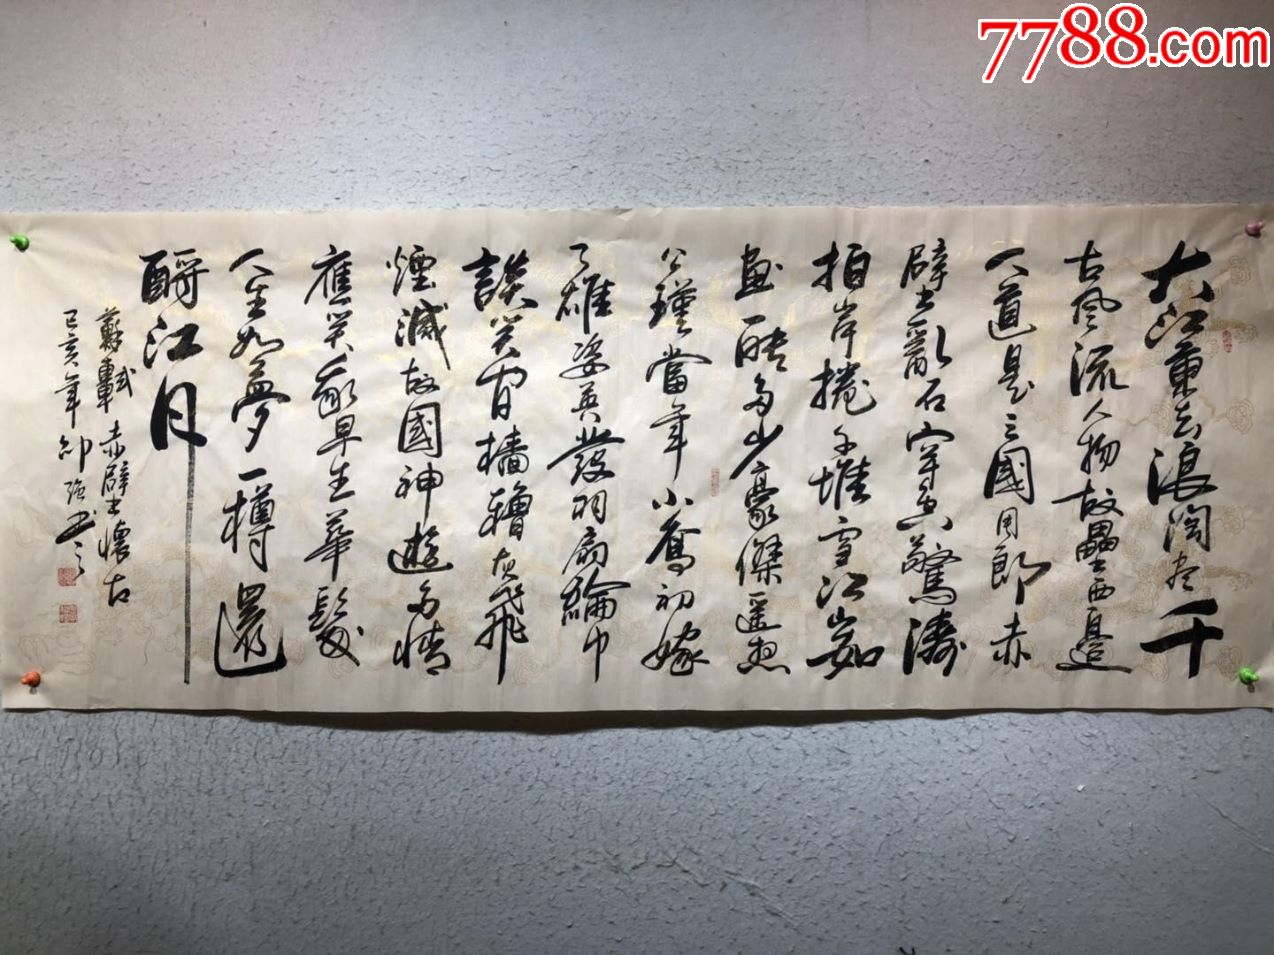 7788.com
大江東去浪淘盡千
古風流人物故壘西邊
人道是三國周郎赤
壁亂石穿空驚濤
拍岸捲千堆雪江山如
畫一時多少豪傑遥想
公瑾當年小喬初嫁
了雄姿英發羽扇綸巾
談笑間檣櫓灰飛
煙滅故國神遊多情
應笑我早生華髮
人生如夢一樽還
酹江月
蘇軾赤壁懷古
己亥年 強书